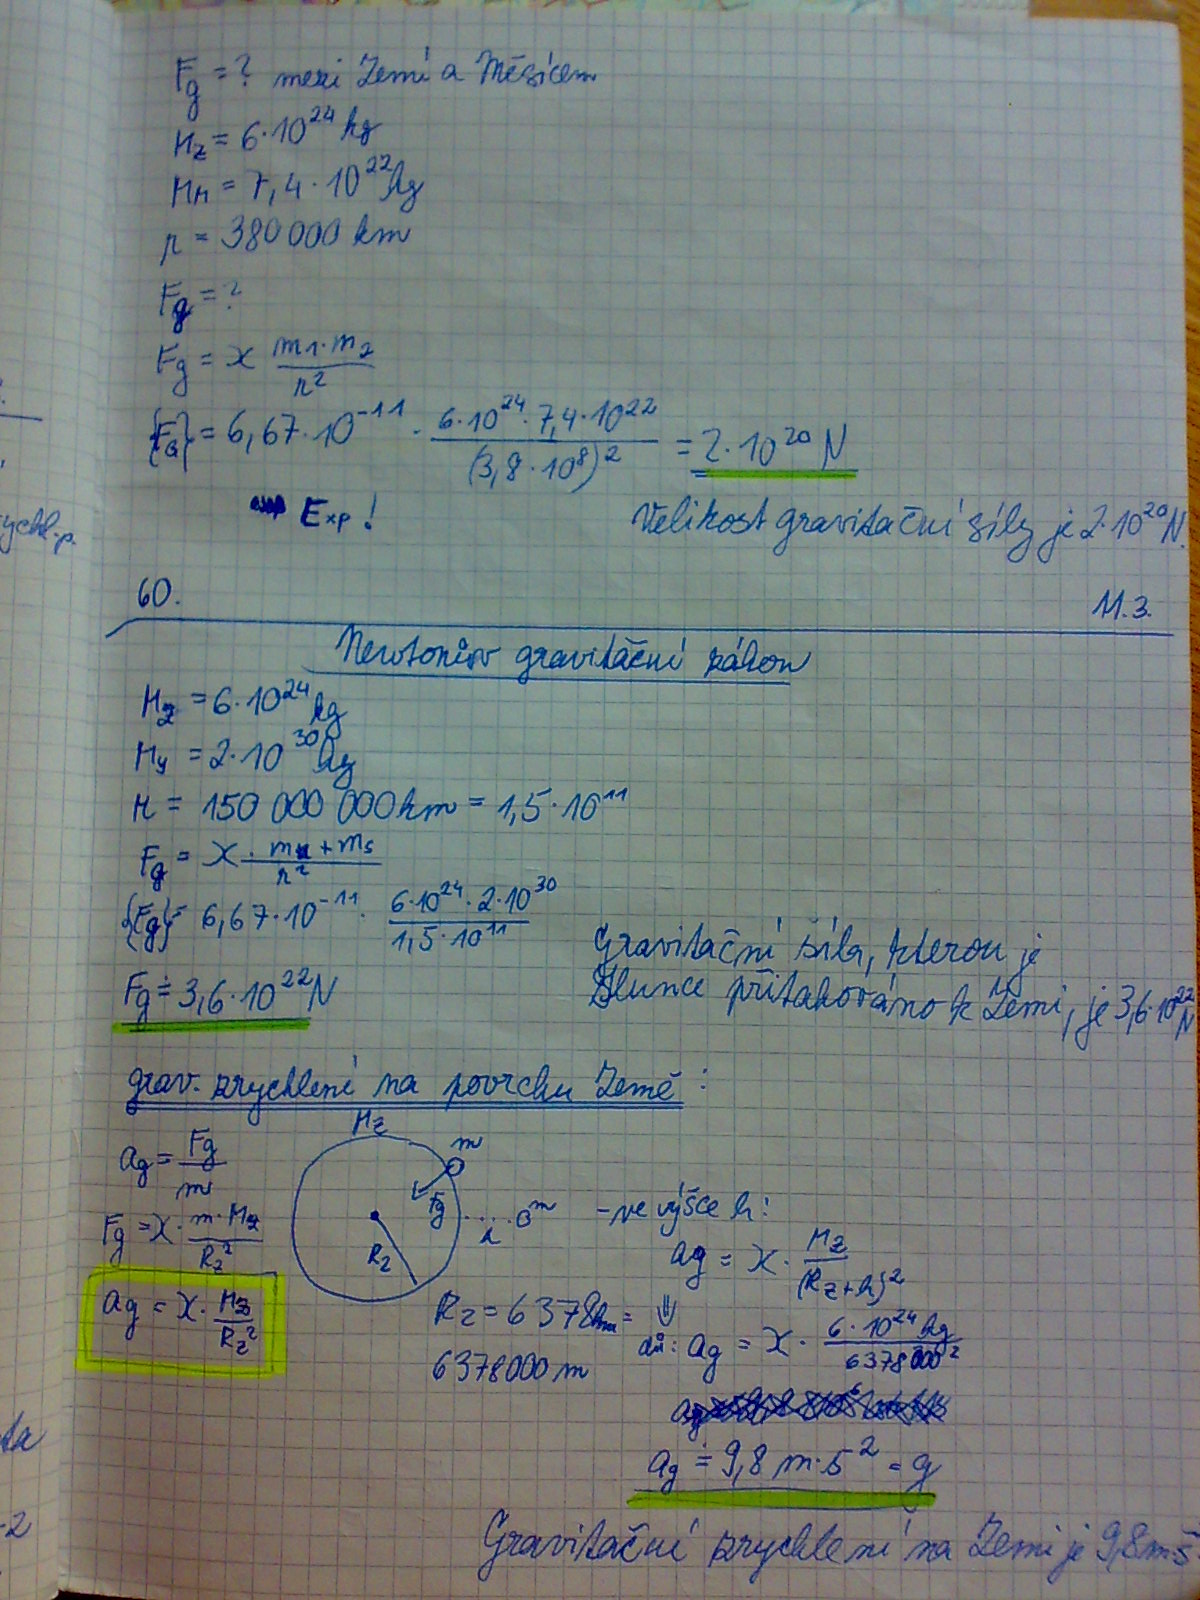 Fg = ? mezi Zemí a Měsícem
Mz = 6·10²⁴ kg
Mm = 7,4·10²² kg
r = 380 000 km
Fg = ?
Fg = ϰ m1·m2 / r²
{Fg} = 6,67·10⁻¹¹ · 6·10²⁴·7,4·10²² / (3,8·10⁸)² = 2·10²⁰ N
Exp!
Velikost gravitační síly je 2·10²⁰ N.
rychl. p.
60.
11.3.
Newtonův gravitační zákon
Mz = 6·10²⁴ kg
Ms = 2·10³⁰ kg
r = 150 000 000 km = 1,5·10¹¹
Fg = ϰ · mz + ms / r²
{Fg} = 6,67·10⁻¹¹ · 6·10²⁴·2·10³⁰ / 1,5·10¹¹
Fg ≐ 3,6·10²² N
Gravitační síla, kterou je
Slunce přitahováno k Zemi, je 3,6·10²² N
grav. zrychlení na povrchu Země:
Mz
m
ag = Fg / m
Fg
Rz
h
m
Fg = ϰ · m·Mz / Rz²
ag = ϰ · Mz / Rz²
Rz = 6378km =
6378000 m
- ve výšce h:
ag = ϰ · Mz / (Rz+h)²
⇓
dú: ag = ϰ · 6·10²⁴kg / 6378000²
ag ≐ 9,8 m·s² = g
Gravitační zrychlení na Zemi je 9,8 m·s
ta
-2